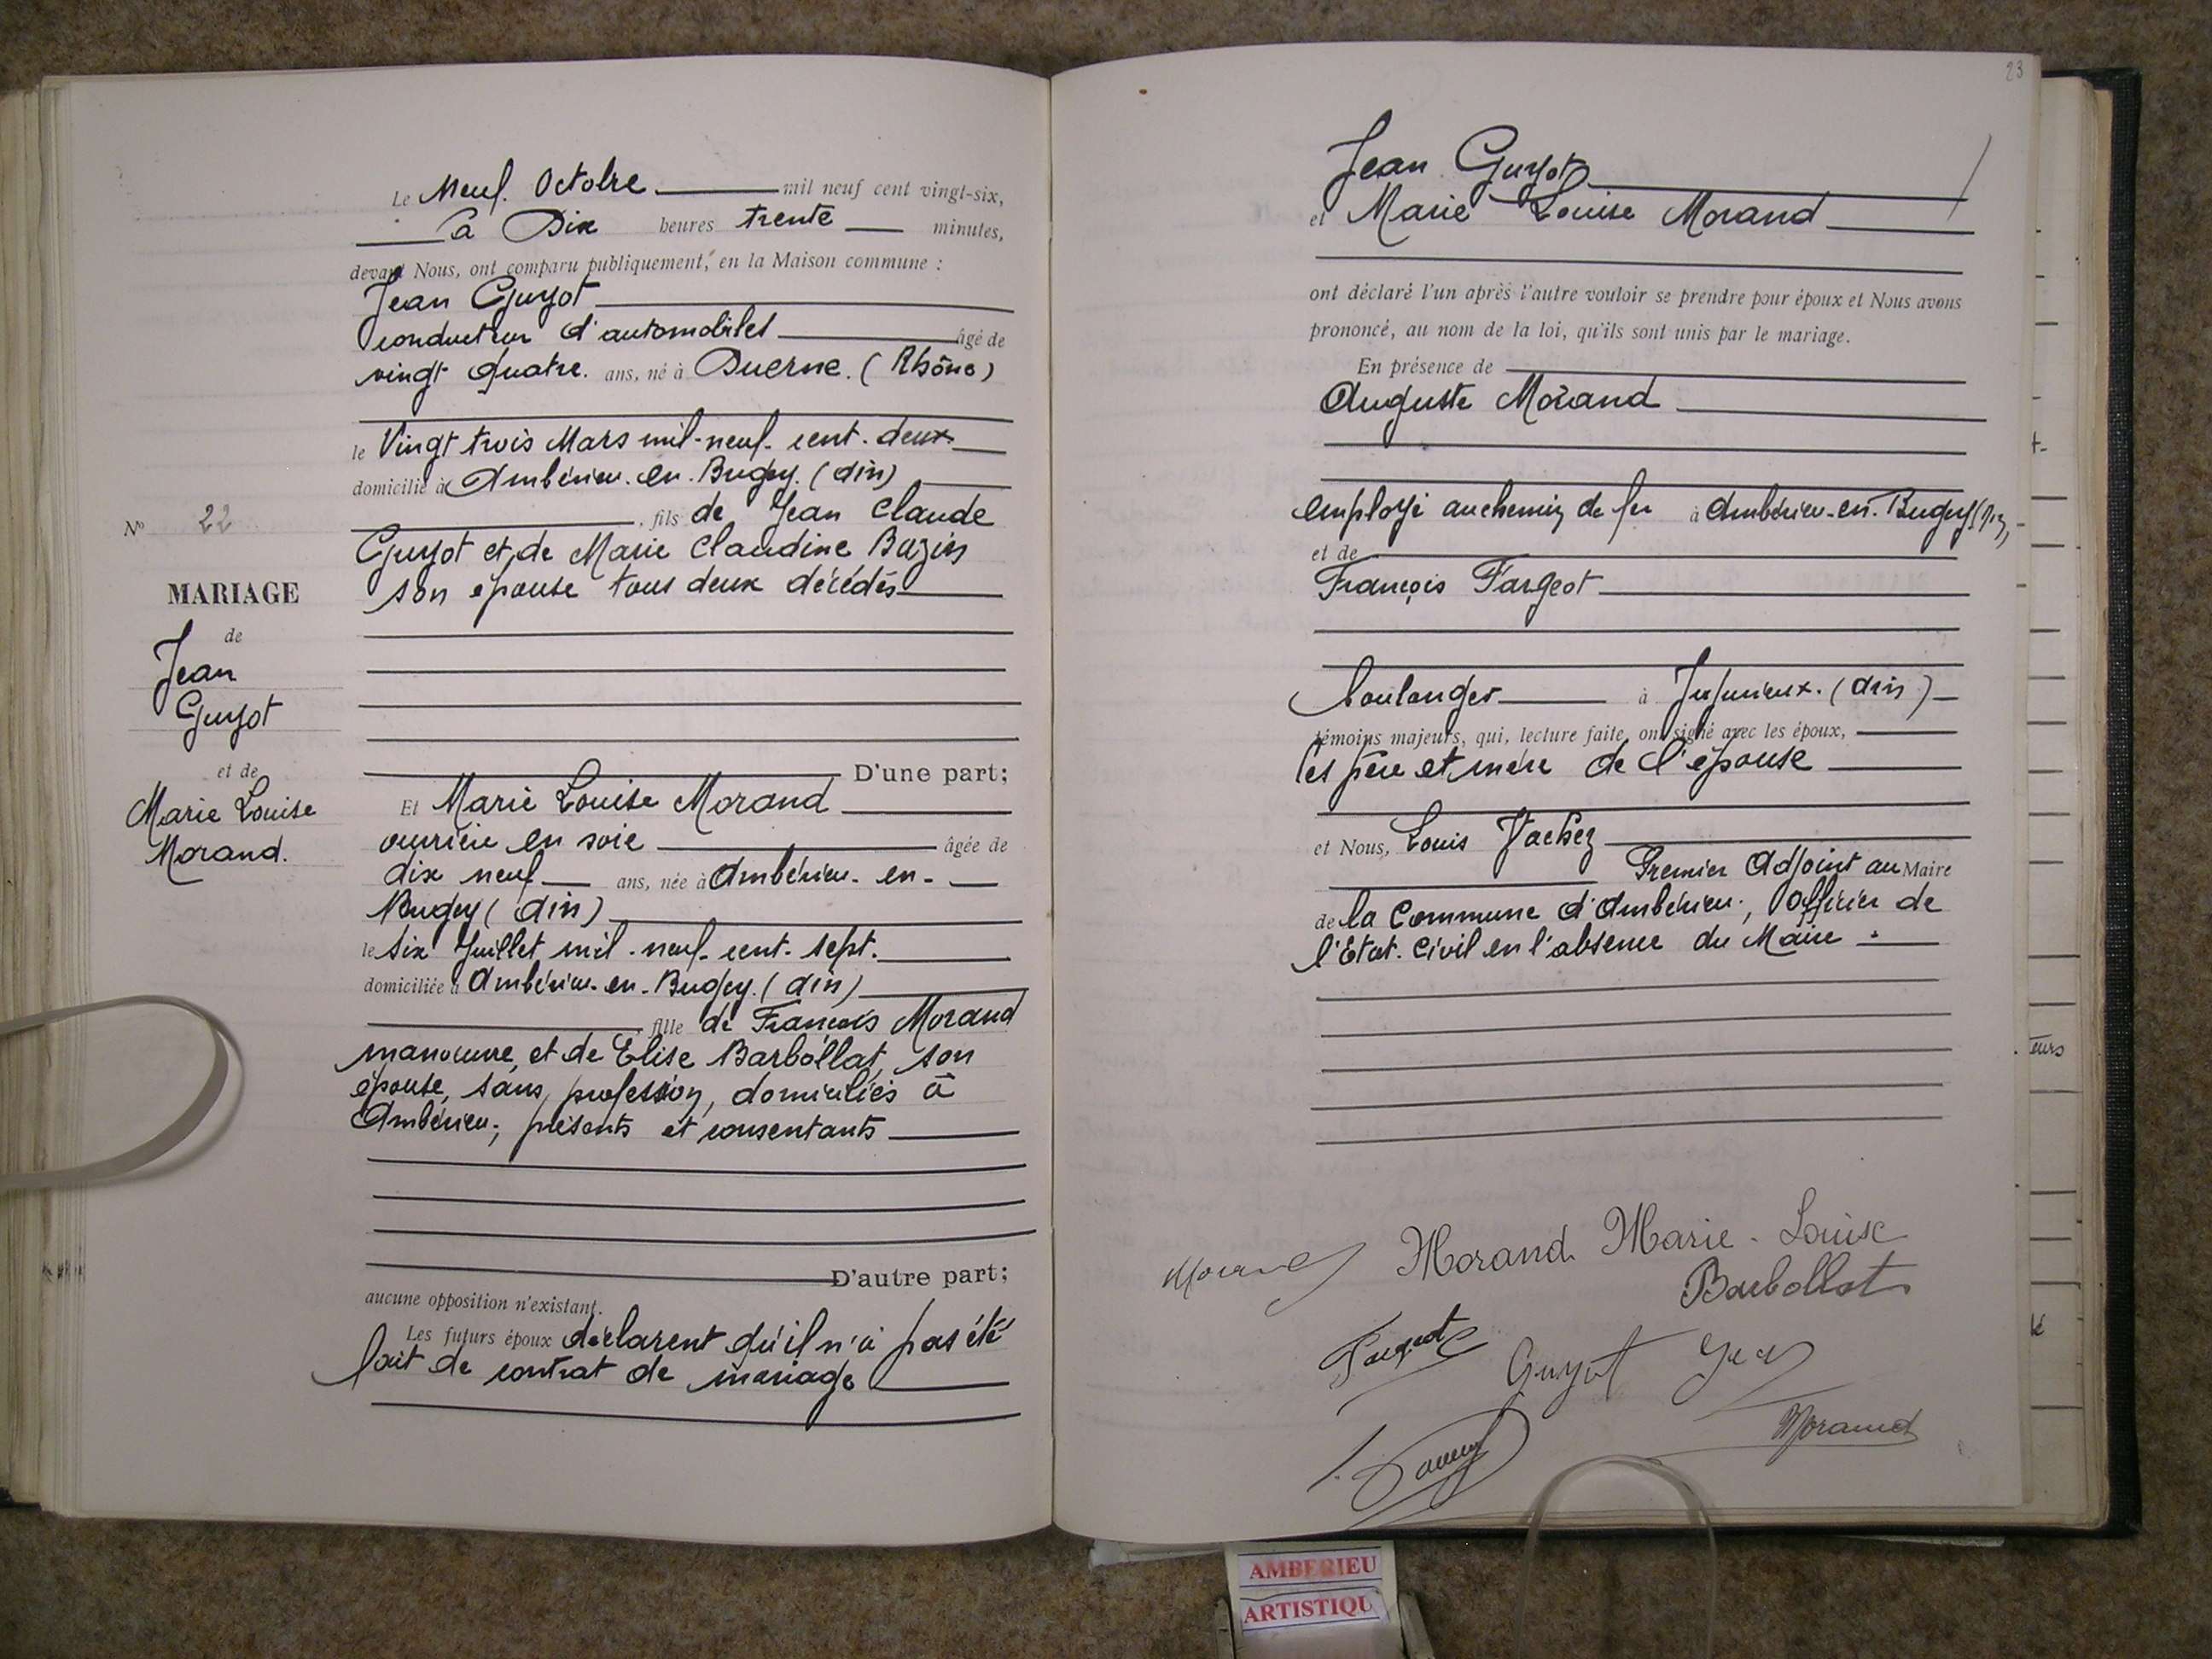 Le Neuf Octobre mil neuf cent vingt-six,
à Dix heures trente minutes,
devant Nous, ont comparu publiquement, en la Maison commune :
Jean Guyot
conducteur d'automobiles âgé de
vingt quatre ans, né à Duerne. (Rhône)
le Vingt trois Mars mil-neuf-cent-deux
domicilié à Ambérieu-en-Bugey. (Ain)
, fils de Jean Claude
Guyot et de Marie Claudine Bazin
son épouse tous deux décédés
D'une part;
Et Marie Louise Morand
ouvrière en soie âgée de
dix neuf ans, née à Ambérieu-en-
Bugey (Ain)
le Six Juillet mil-neuf-cent-sept.
domiciliée à Ambérieu-en-Bugey. (Ain)
, fille de François Morand
manoeuvre, et de Elise Barbollat, son
épouse, sans profession, domiciliés à
Ambérieu; présents et consentants
D'autre part;
aucune opposition n'existant.
Les futurs époux déclarent qu'il n'a pas été
fait de contrat de mariage
N° 22
MARIAGE
de
Jean
Guyot
et de
Marie Louise
Morand.
23
Jean Guyot
et Marie Louise Morand
ont déclaré l'un après l'autre vouloir se prendre pour époux et Nous avons
prononcé, au nom de la loi, qu'ils sont unis par le mariage.
En présence de
Auguste Morand
employé au chemin de fer à Ambérieu-en-Bugey (Ain)
et de
François Fargeot
boulanger à Jujurieux. (Ain)
témoins majeurs, qui, lecture faite, ont signé avec les époux,
les père et mère de l'épouse
et Nous, Louis
Premier Adjoint au Maire
de la Commune d'Ambérieu, Officier de
l'Etat-Civil en l'absence du Maire.
Morand Morand Marie-Louise
Barbollat
Fargeot Guyot Jean
Morand
AMBERIEU
ARTISTIQU